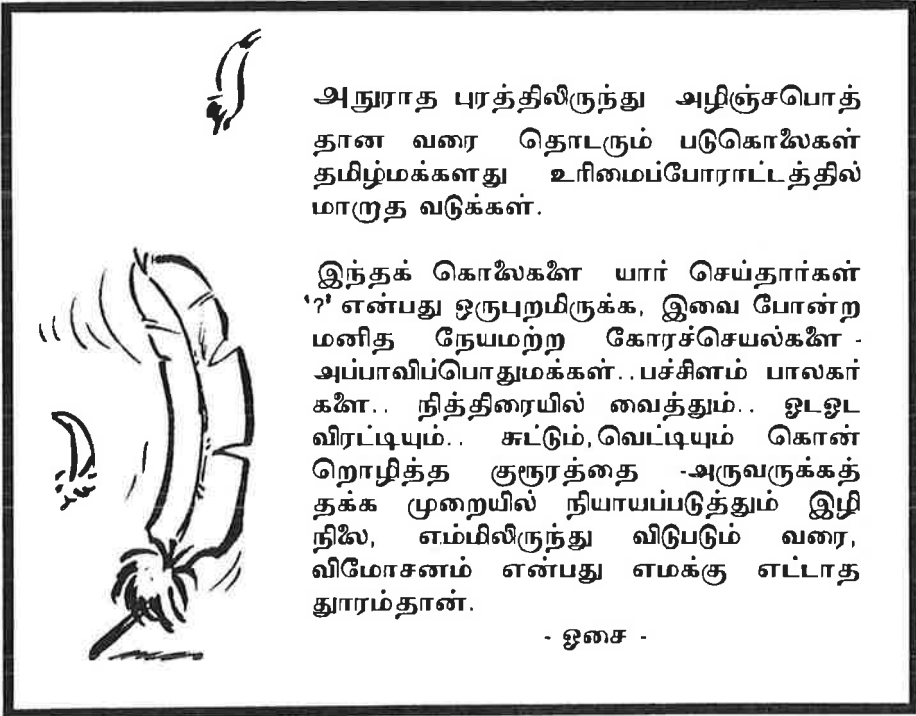 அநுராத புரத்திலிருந்து அழிஞ்சபொத்
தான வரை தொடரும் படுகொலைகள்
தமிழ்மக்களது உரிமைப்போராட்டத்தில்
மாறாத வடுக்கள்.
இந்தக் கொலைகளை யார் செய்தார்கள்
'?' என்பது ஒருபுறமிருக்க, இவை போன்ற
மனித நேயமற்ற கோரச்செயல்களை -
அப்பாவிப்பொதுமக்கள்..பச்சிளம் பாலகர்
களை.. நித்திரையில் வைத்தும்.. ஓடஓட
விரட்டியும்.. சுட்டும்,வெட்டியும் கொன்
றொழித்த குரூரத்தை -அருவருக்கத்
தக்க முறையில் நியாயப்படுத்தும் இழி
நிலை, எம்மிலிருந்து விடுபடும் வரை,
விமோசனம் என்பது எமக்கு எட்டாத
தூரம்தான்.
- ஓசை -